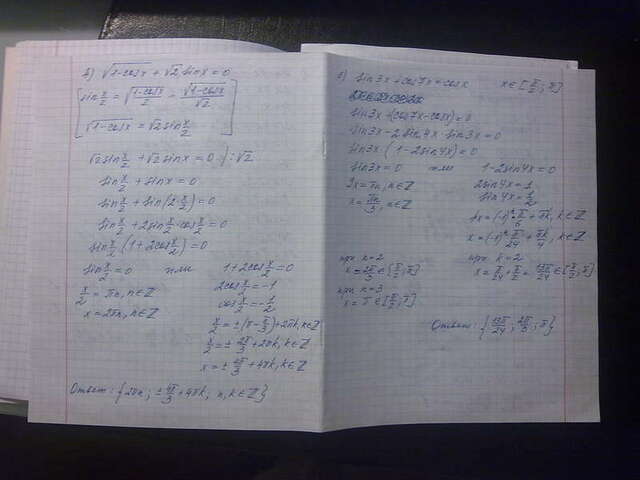 √(1-cosx) + √2 sinx = 0
[ sin x/2 = √((1-cosx)/2) = √(1-cosx)/√2
√(1-cosx) = √2 sin x/2 ]
√2 sin x/2 + √2 sinx = 0 / :√2
sin x/2 + sinx = 0
sin x/2 + sin(2·x/2) = 0
sin x/2 + 2sin x/2·cos x/2 = 0
sin x/2 (1+2cos x/2) = 0
sin x/2 = 0 или 1+2cos x/2 = 0
x/2 = πn, n∈Z 2cos x/2 = -1
x = 2πn, n∈Z cos x/2 = -1/2
x/2 = ±(π-π/3)+2πk, k∈Z
x/2 = ± 2π/3 + 2πk, k∈Z
x = ± 4π/3 + 4πk, k∈Z
Ответ: {2πn; ± 4π/3 + 4πk; n,k∈Z}
sin3x + cos7x = cosx x∈[π/2; π]
sin3x + (cos7x - cosx) = 0
sin3x - 2sin4x·sin3x = 0
sin3x·(1-2sin4x) = 0
sin3x = 0 или 1-2sin4x = 0
3x = πn, n∈Z 2sin4x = 1
x = πn/3, n∈Z sin4x = 1/2
4x = (-1)ᵏ π/6 + πk, k∈Z
x = (-1)ᵏ π/24 + πk/4, k∈Z
при n=2 при k=2
x = 2π/3 ∈ [π/2; π] x = π/24 + π/2 = 13π/24 ∈ [π/2; π]
при n=3
x = π ∈ [π/2; π]
Ответ: {13π/24; 2π/3; π}